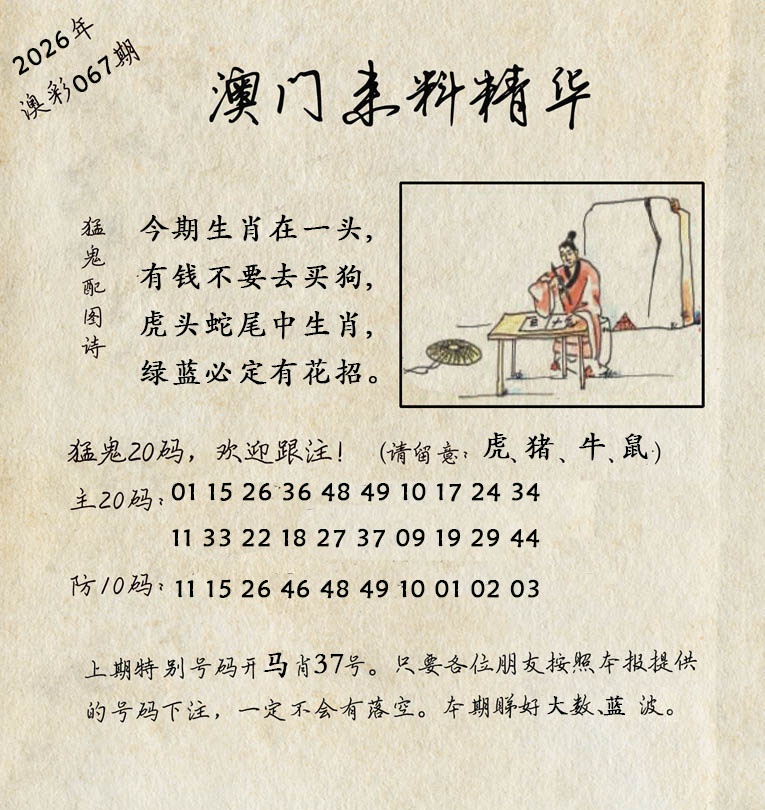 2026年
澳彩067期
澳门来料精华
猛鬼配图诗
今期生肖在一头，
有钱不要去买狗，
虎头蛇尾中生肖，
绿蓝必定有花招。
猛鬼20码，欢迎跟注！（请留意：虎、猪、牛、鼠）
主20码：01 15 26 36 48 49 10 17 24 34
11 33 22 18 27 37 09 19 29 44
防10码：11 15 26 46 48 49 10 01 02 03
上期特别号码开马肖37号。只要各位朋友按照本报提供
的号码下注，一定不会有落空。本期睇好大数、蓝 波。